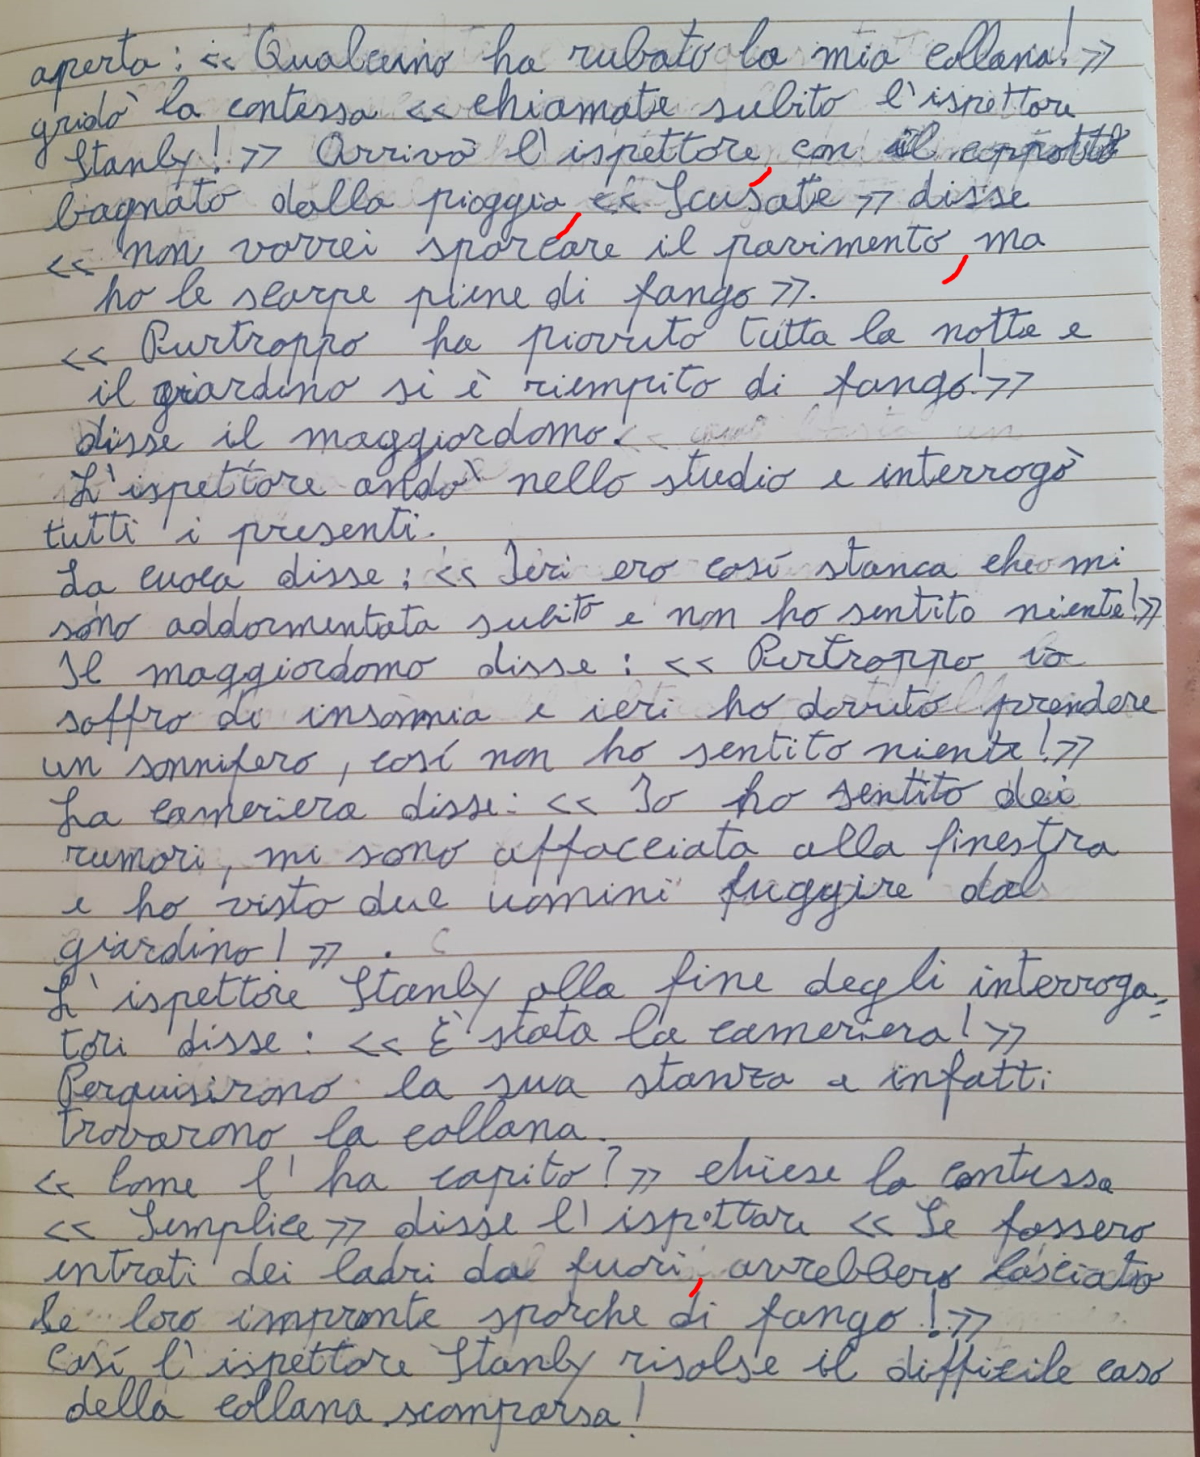 aperta: << Qualcuno ha rubato la mia collana! >>
gridò la contessa << chiamate subito l'ispettore
Stanly! >> Arrivò l'ispettore, con il cappotto
bagnato dalla pioggia, << Scusate >> disse
<< non vorrei sporcare il pavimento, ma
ho le scarpe piene di fango >>.
<< Purtroppo ha piovuto tutta la notte e
il giardino si è riempito di fango! >>
disse il maggiordomo.
L'ispettore andò nello studio e interrogò
tutti i presenti.
La cuoca disse: << Ieri ero così stanca che mi
sono addormentata subito e non ho sentito niente! >>
Il maggiordomo disse: << Purtroppo io
soffro di insonnia e ieri ho dovuto prendere
un sonnifero, così non ho sentito niente! >>
La cameriera disse: << Io ho sentito dei
rumori, mi sono affacciata alla finestra
e ho visto due uomini fuggire dal
giardino! >>.
L'ispettore Stanly alla fine degli interroga=
tori disse: << È stata la cameriera! >>
Perquisirono la sua stanza e infatti
trovarono la collana.
<< Come l'ha capito? >> chiese la contessa
<< Semplice >> disse l'ispettore << Se fossero
entrati dei ladri da fuori, avrebbero lasciato
le loro impronte sporche di fango! >>
Così l'ispettore Stanly risolse il difficile caso
della collana scomparsa!